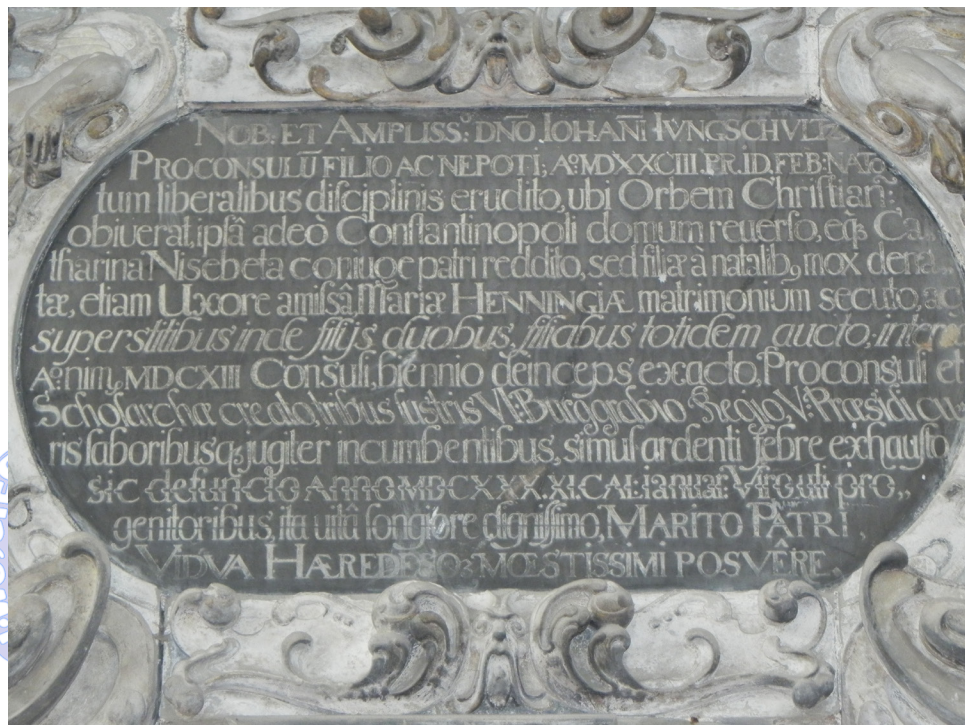 NOB. ET AMPLISS: DNO. IOHAÑI IVNGSCHVLTZ
PROCONSULŪ FILIO AC NEPOTI; Aº. MDXXCIII. PR. ID. FEB: NATO,
tum liberalibus disciplinis erudito, ubi Orbem Christian:
obiverat, ipsâ adeò Constantinopoli domum reuerso, eq₃ Ca„
tharina Nisebeta coniuge patri reddito, sed filiæ à natalib₉ mox dena„
tæ, etiam Uxore amissâ, Mariæ HENNINGIÆ matrimonium secuto, ac
superstitibus inde filijs duobus, filiabus totidem aucto; interea
Aº. nim. MDCXIII Consuli, biennio deinceps exacto, Proconsuli et
Scholarchæ creato, tribus lustris VI. Burggrabio Regio, V. Præsidi cu„
ris laboribusq₃ jugiter incumbentibus, simul ardenti febre exhausto
sic defuncto ANNO MDCXXX. XI. CAL: ianuar: Viro, uti pro„
genitoribus, ita uitâ longiore dignissimo, MARITO PATRI,
VIDVA HÆREDESQ₃ MŒSTISSIMI POSVÊRE.